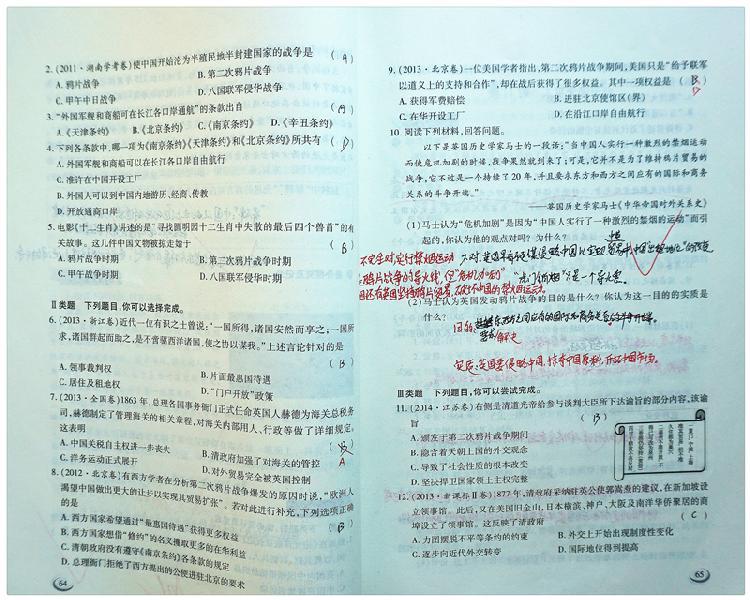 2.(2011·湖南学考卷)使中国开始沦为半殖民地半封建国家的战争是
(A)
A.鸦片战争 B.第二次鸦片战争
C.甲午中日战争 D.八国联军侵华战争
3.“外国军舰和商船可在长江各口岸通航”的条款出自 (A)
A.《天津条约》 B.《北京条约》 C.《南京条约》 D.《辛丑条约》
4.下列各条款中,哪一项为《南京条约》《天津条约》和《北京条约》所共有 (D)
A.外国军舰和商船可以在长江各口岸自由航行
C.准许在中国开设工厂
B.外国人可以到中国内地游历、经商、传教
D.开放通商口岸
5.电影《十二生肖》讲述的是“寻找圆明园十二生肖中失散的最后四个兽首”的有
关故事。这几件中国文物被掠走始于 (B)
A.鸦片战争时期 B.第二次鸦片战争时期
C.甲午战争时期 D.八国联军侵华时期
Ⅱ类题 下列题目,你可以选择完成。
6.(2013·浙江卷)近代一位有识之士曾说:“一国所得,诸国安然而享之;一国所
求,诸国群起而助之,是不啻驱西洋诸国,使之协以谋我。”上述言论针对的是
(B)
A.领事裁判权 B.片面最惠国待遇
C.居住及租地权 D.“门户开放”政策
7.(2013·全国卷)1863年,总理各国事务衙门正式任命英国人赫德为海关总税务
司,赫德制定了管理海关的相关章程,对海关内部用人、行政等做了详细规定。
这表明
A.中国关税自主权进一步丧失 B.清政府加强了对海关的管控
A
C.洋务运动正式展开 D.对外贸易完全被英国控制
8.(2012·北京卷)有西方学者在分析第二次鸦片战争爆发的原因时说,“欧洲人
渴望中国做出更大的让步以实现其贸易扩张”。若对此进行补充,下列选项正确
的是 (B)
A.西方国家希望通过“最惠国待遇”获得更多权益
B.西方国家想借“修约”的名义攫取更多的在华利益
C.清朝政府没有遵守《南京条约》各条款的规定
D.总理衙门拒绝了西方提出的公使进驻北京的要求
64
9.(2013·北京卷)一位美国学者指出,第二次鸦片战争期间,美国只是“给予联军
以道义上的支持和合作”,却在战后获得了很多权益。其中一项权益是
D
A.获得军费赔偿 B.进驻北京使馆区(界)
C.在华开设工厂 D.在沿江口岸自由航行
10.阅读下列材料,回答问题。
以下是英国历史学家马士的一段话:“当中国人实行一种激烈的禁烟运动
而使危机加剧的时候,战争果然就到来了;可是,它并不是为了维持鸦片贸易的
战争,它不过是一个持续了20年,并且要决东方和西方之间应有的国际和商务
关系的斗争开端。”
——英国历史学家马士《中华帝国对外关系史》
(1)马士认为“危机加剧”是因为“中国人实行了一种激烈的禁烟运动”而引
起的,你认为他的观点对吗?为什么?
(2)马士认为英国发动鸦片战争的目的是什么?你认为这一目的的实质是
什么?
Ⅲ类题 下列题目,你可以尝试完成。
11.(2014·江苏卷)右侧是清道光帝给参与谈判大臣所下达谕旨的部分内容,该谕
旨 (B)
A.颁发于第二次鸦片战争期间
B.隐含着天朝上国的外交观念
C.导致了社会性质的根本改变
D.坚决捍卫国家领土主权完整
12.(2013·新课标Ⅱ卷)1877年,清政府采纳驻英公使郭嵩焘的建议,在新加坡设
立领事馆。此后,又在美国旧金山、日本横滨、神户、大阪及南洋华侨聚居的商
埠设立了领事馆。这反映了清政府 (C)
A.力图摆脱不平等条约的约束 B.外交上开始出现制度性变化
C.逐步向近代外交转变 D.国际地位得到提高
65